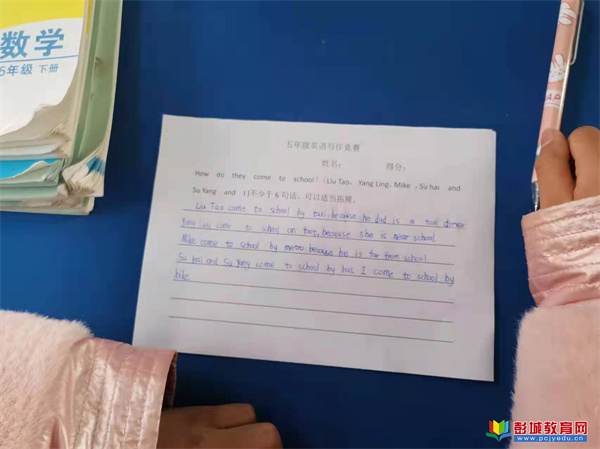 数学
5年级 下册
五年级英语写作竞赛
姓名： 得分：
How do they come to school? (Liu Tao、Yang Ling、Mike , Su hai and
Su Yang and I)不少于 6 句话，可以适当拓展。
Liu Tao come to school by taxi, because he dad is a taxi driver.
Yang Ling come to shool on foot, because she is near school.
Mike come to school by metro. because he is far from school.
Su hai and Su Yang come to school by bus. I come to school by
bike.
彭城教育网
www.pcjyedu.cn